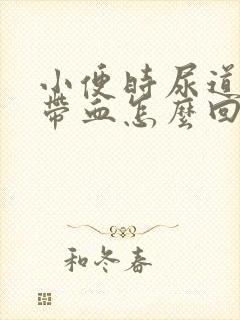 小便時尿道
帶血怎麼回
和冬春